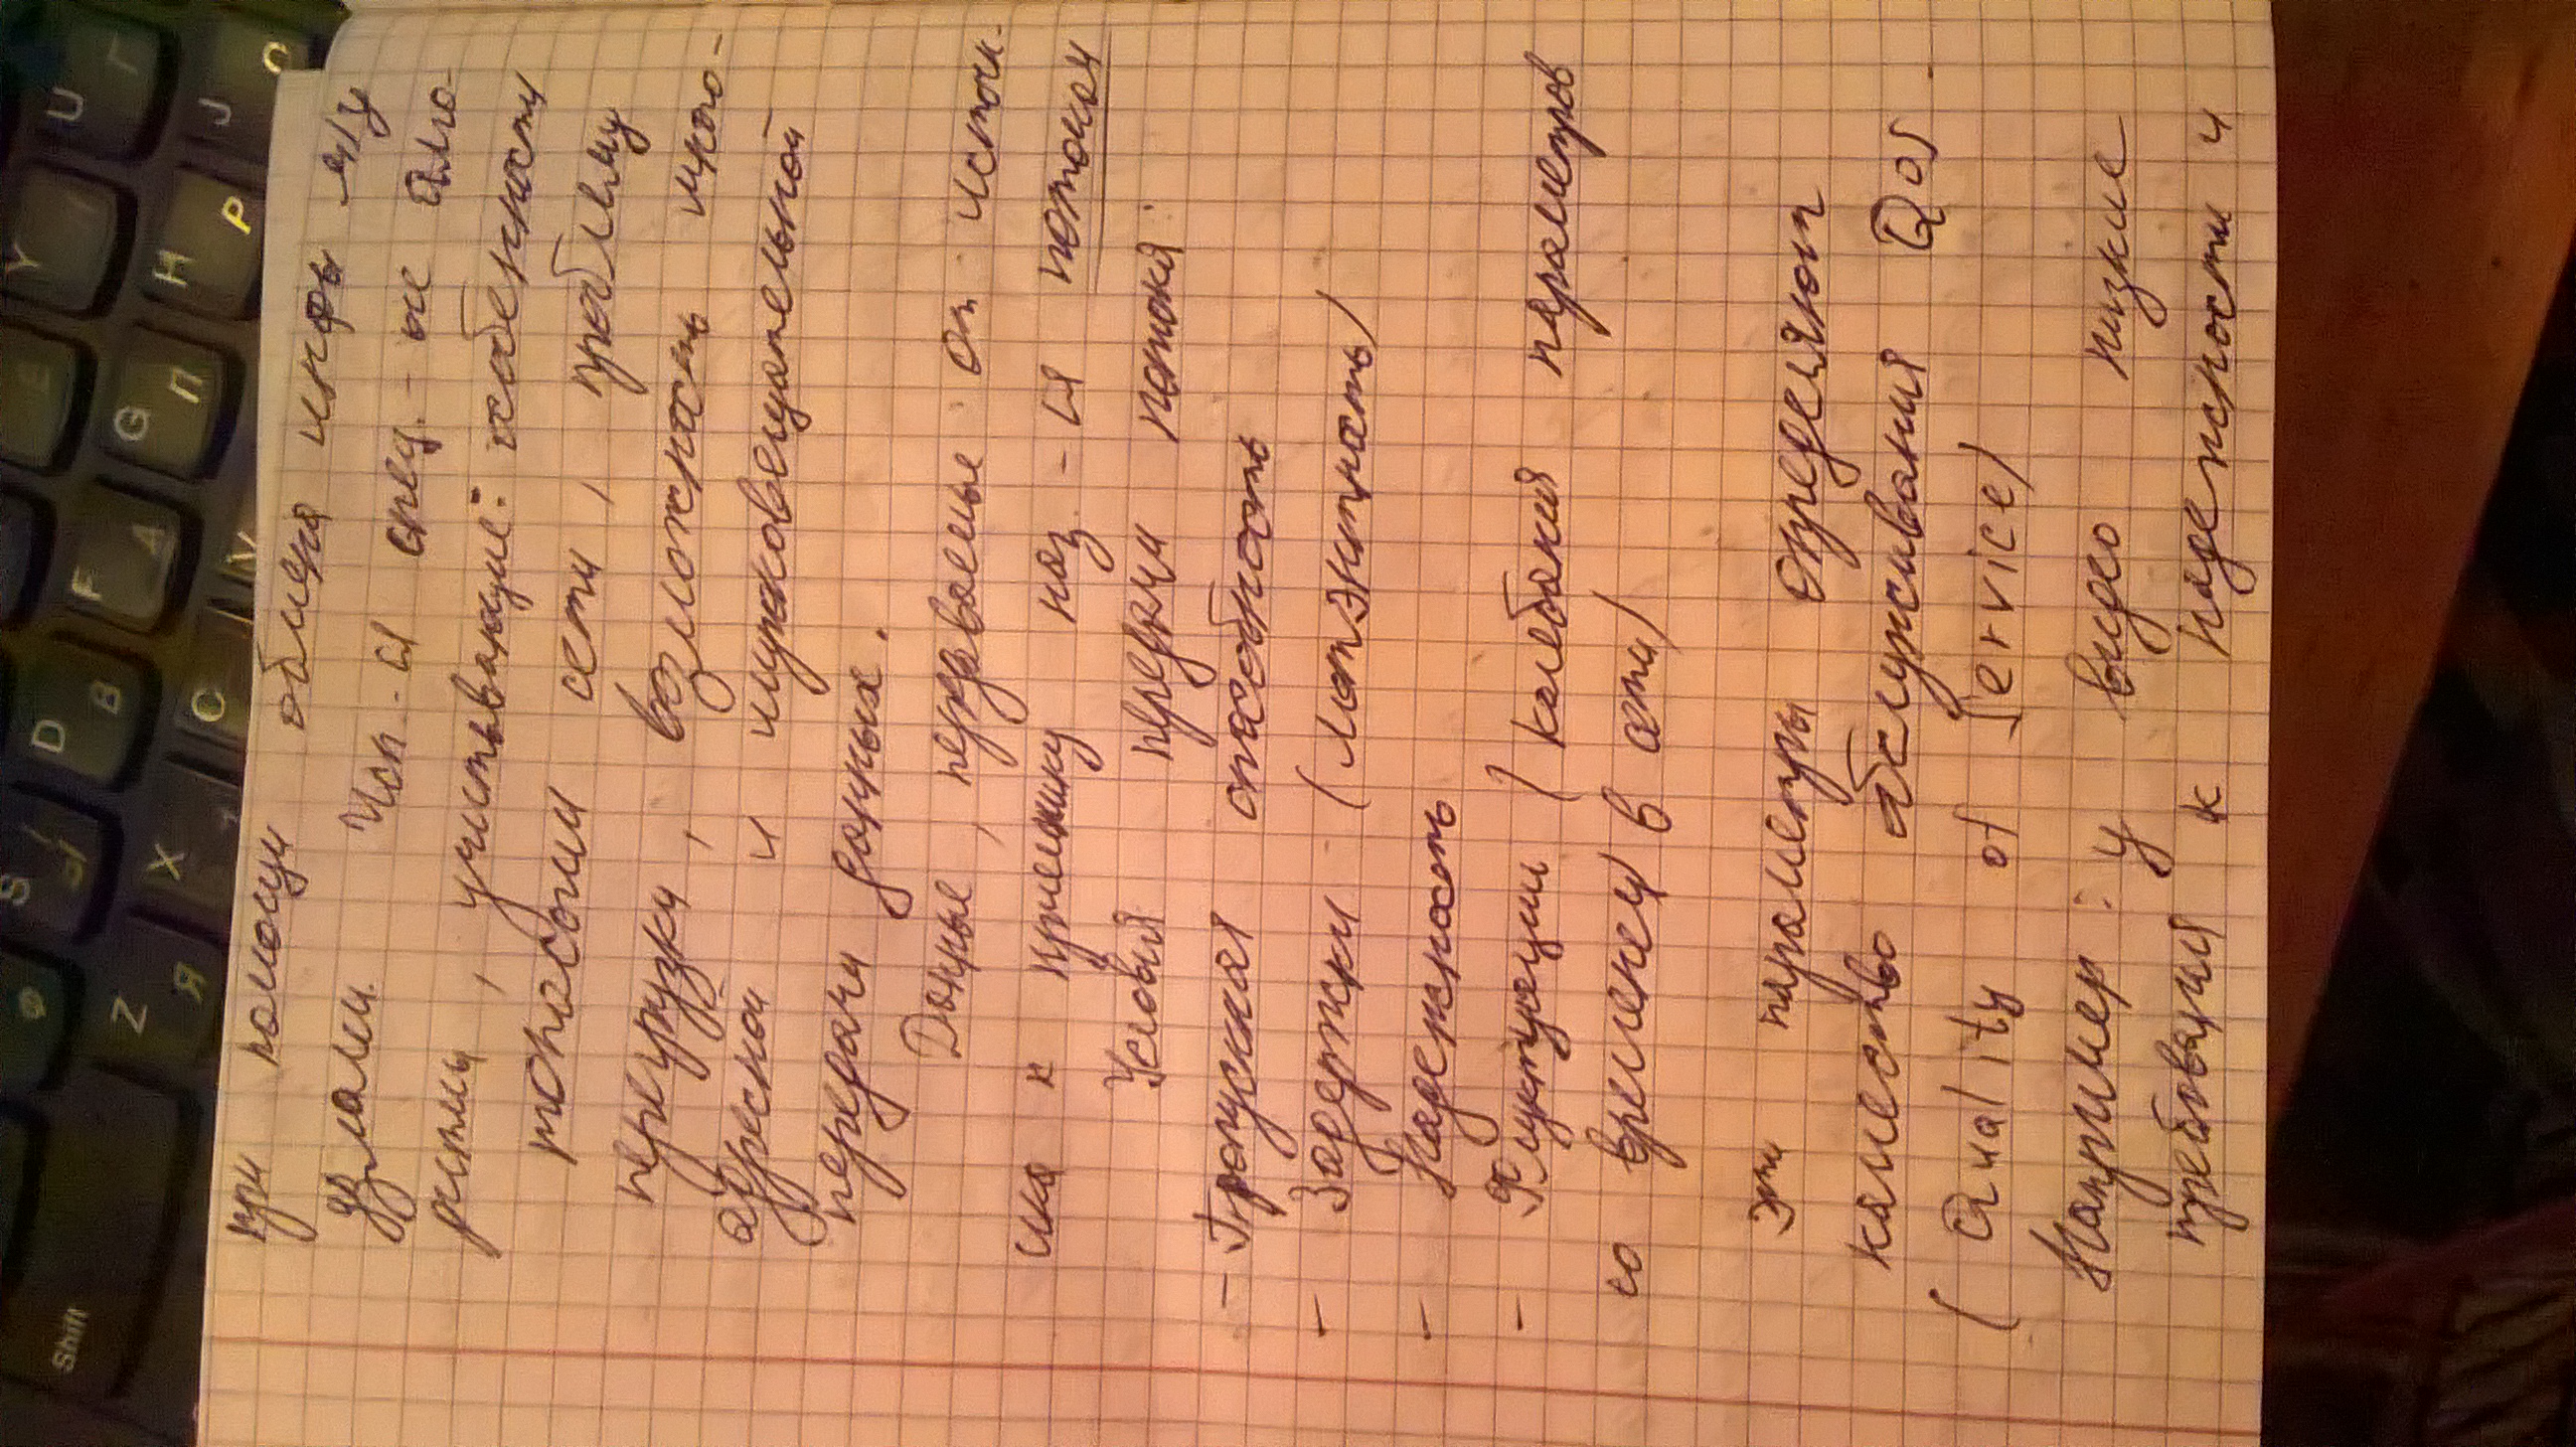 Shift
S Ы
D В
F А
G П
Y
U Г
Z Я
X
C
V
H Р
J О
при помощи обмена инфы м/у
узлами. Исп-ся спец.-ые алго-
ритмы, учитывающие: особенности
топологии сети, проблему
перегрузки, возможность много-
адресной и широковещательной
передачи данных.
Данные, передаваемые от источн-
ика к приемнику наз.-ся потоком
Условия передачи потока:
- Пропускная способность
- Задержки (латэнтность)
- Надежность
- Флуктуации (колебания параметров
со временем в сети)
Эти параметры определяют
качество обслуживания QoS.
(Quality of Service)
Например: у видео низкие
требования к надежности и